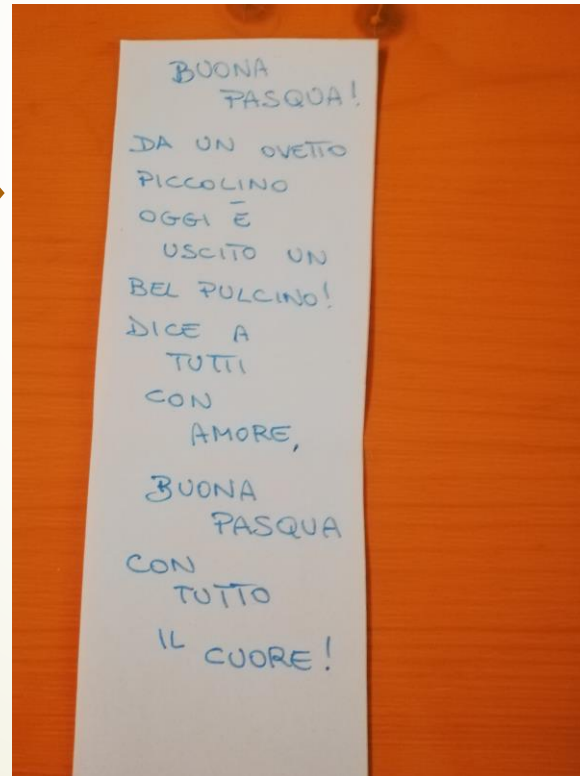 BUONA
PASQUA!
DA UN OVETTO
PICCOLINO
OGGI È
USCITO UN
BEL PULCINO!
DICE A
TUTTI
CON
AMORE,
BUONA
PASQUA
CON
TUTTO
IL CUORE!